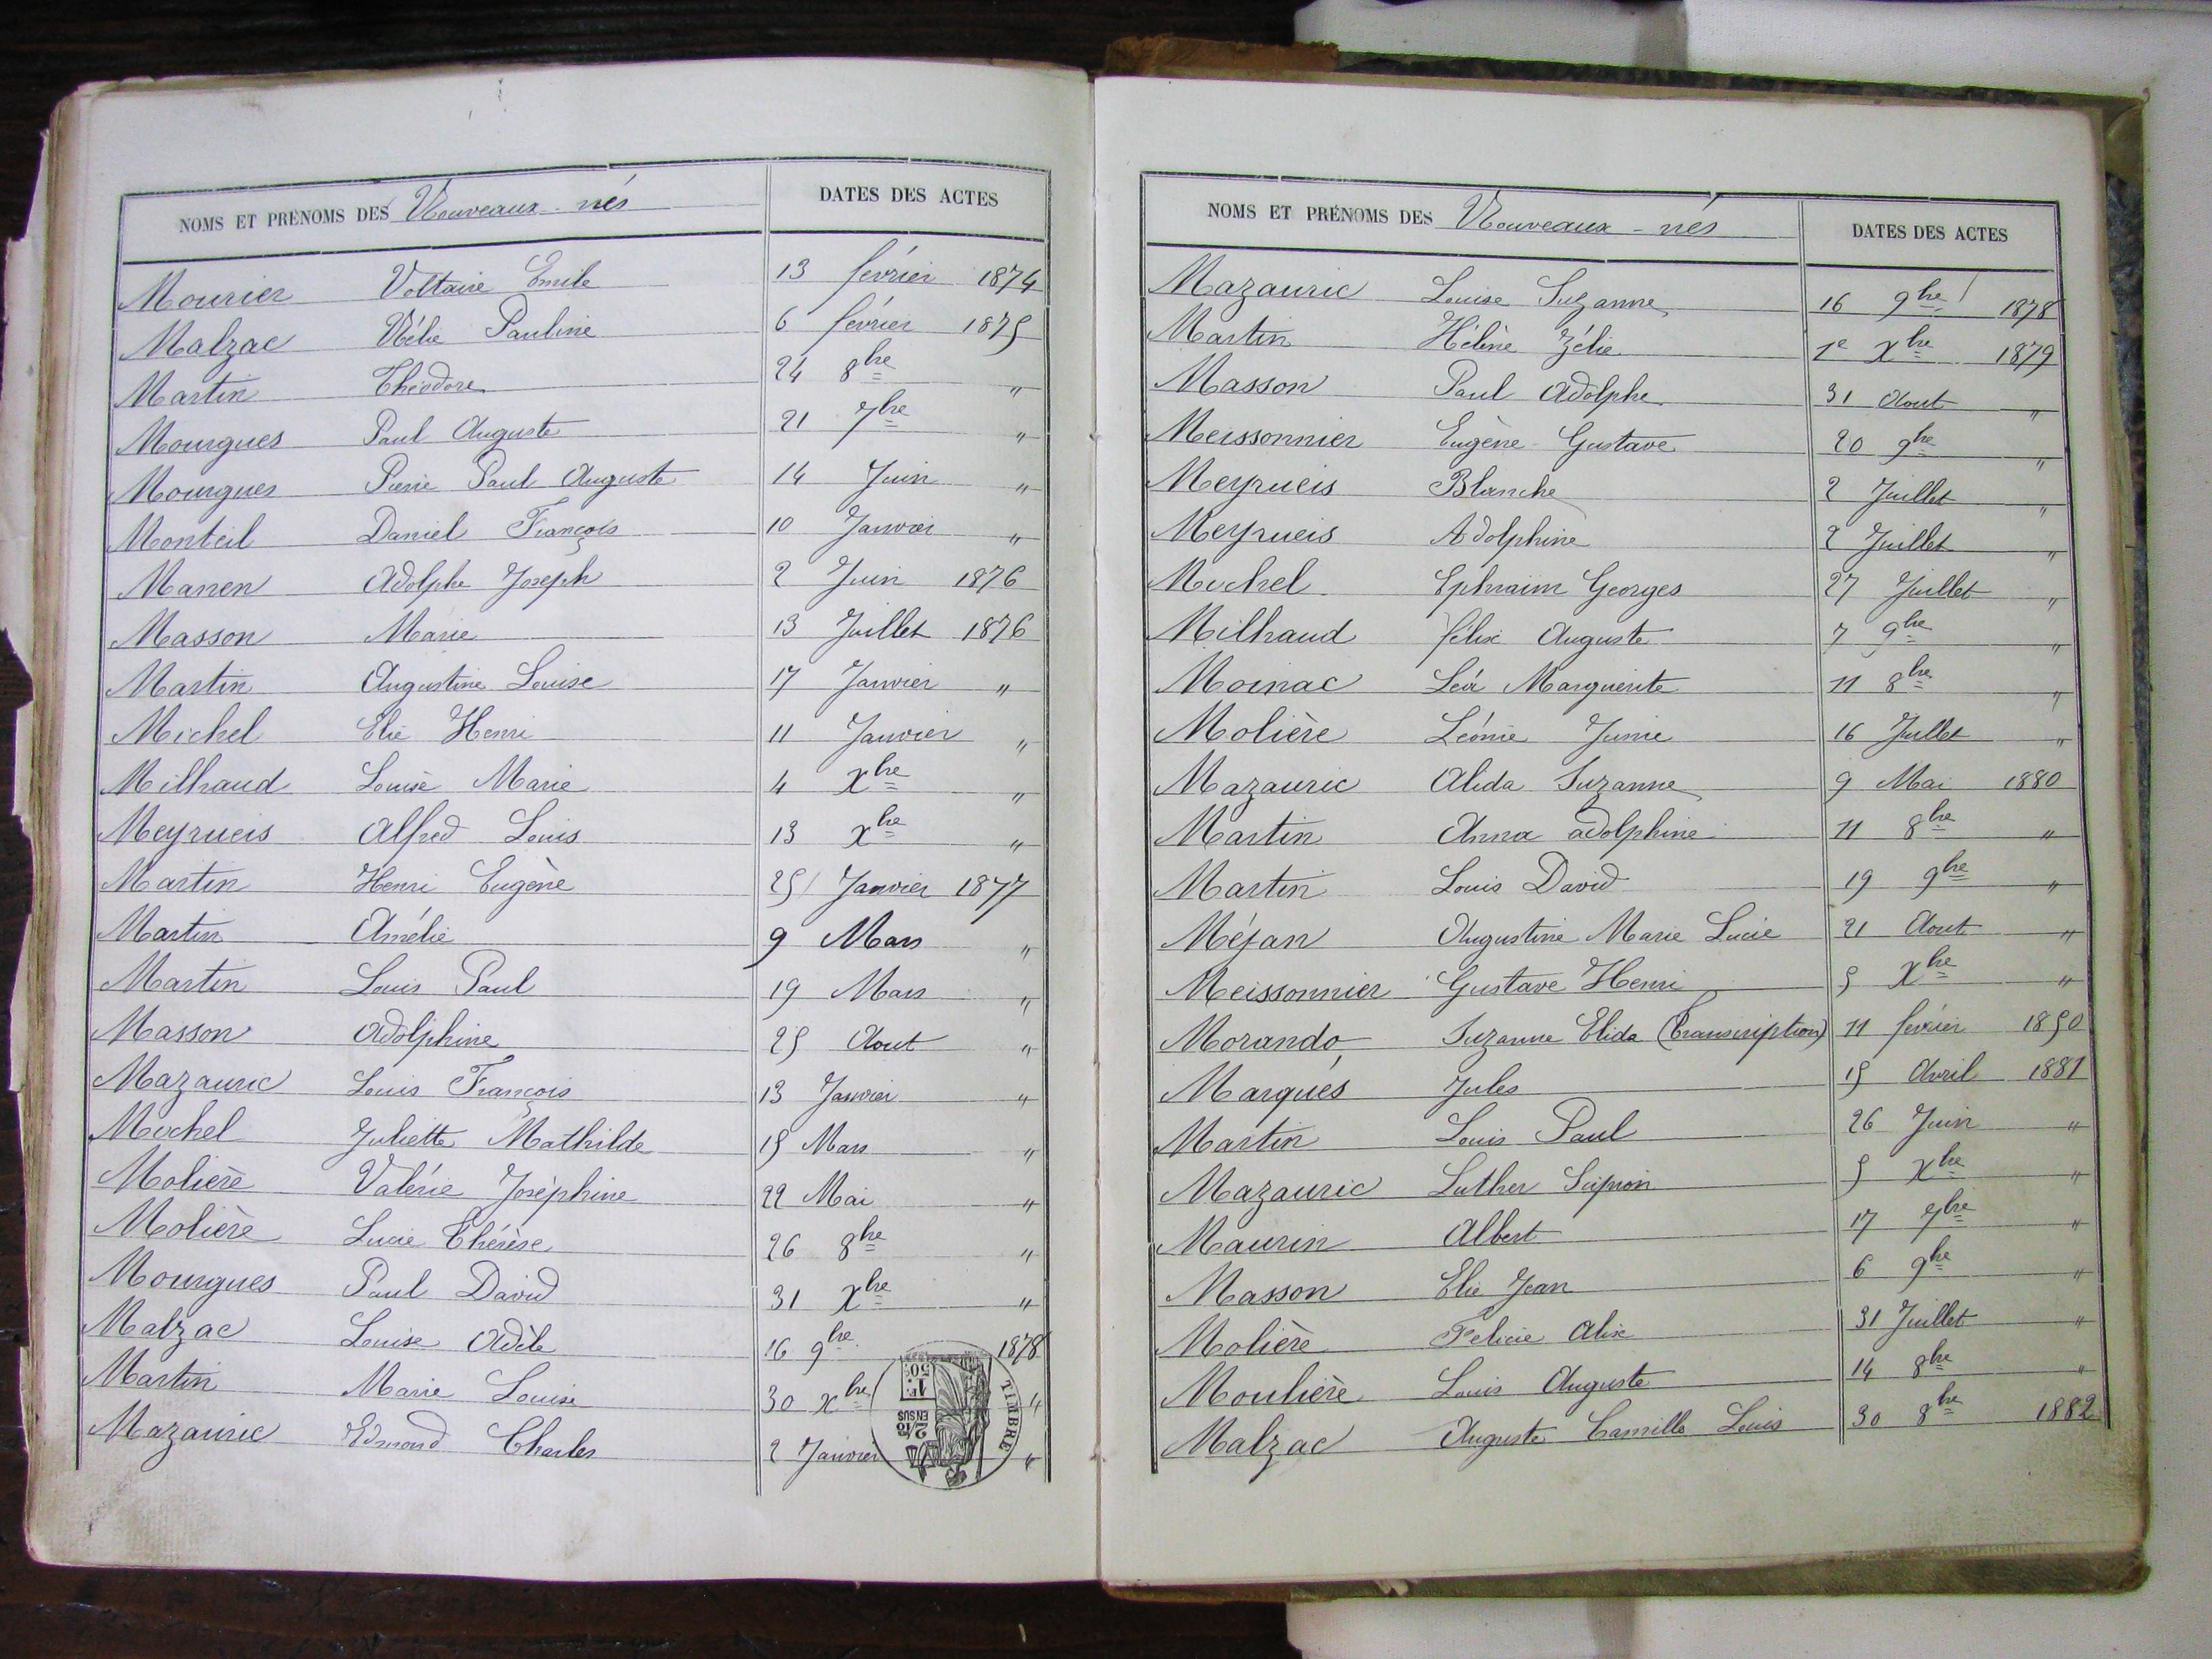 NOMS ET PRÉNOMS DES Nouveaux-nés DATES DES ACTES
Mourier Voltaire Emile 13 février 1874
Malzac Nélie Pauline 6 février 1875
Martin Théodore 24 8bre "
Mourgues Paul Auguste 21 7bre "
Mourgues Pierre Paul Auguste 14 Juin "
Monteil Daniel François 10 Janvier "
Manen Adolphe Joseph 2 Juin 1876
Masson Marie 13 Juillet 1876
Martin Augustine Louise 17 Janvier "
Michel Elie Henri 11 Janvier "
Milhaud Louise Marie 4 Xbre "
Meyrueis Alfred Louis 13 Xbre "
Martin Henri Eugène 25 Janvier 1877
Martin Amélie 9 Mars "
Martin Louis Paul 19 Mars "
Masson Adolphine 25 Aout "
Mazauric Louis François 13 Janvier "
Michel Juliette Mathilde 15 Mars "
Molière Valérie Joséphine 22 Mai "
Molière Lucie Thérèse 26 8bre "
Mourgues Paul David 31 Xbre "
Malzac Louise Adèle 16 9bre 1878
Martin Marie Louise 30 Xbre "
Mazauric Edmond Charles 2 Janvier "
TIMBRE
1F. 50c.
2/10 EN SUS
NOMS ET PRÉNOMS DES Nouveaux-nés DATES DES ACTES
Mazauric Louise Suzanne 16 9bre 1878
Martin Hélène Zélie 1e Xbre 1879
Masson Paul Adolphe 31 Aout "
Meissonnier Eugène Gustave 20 9bre "
Meyrueis Blanche 2 Juillet "
Meyrueis Adolphine 2 Juillet "
Michel Ephraim Georges 27 Juillet "
Milhaud félix Auguste 7 9bre "
Moinac Léa Marguerite 11 8bre "
Molière Léonie Junie 16 Juillet "
Mazauric Alida Suzanne 9 Mai 1880
Martin Anna adolphine 11 8bre "
Martin Louis David 19 9bre "
Méjan Augustine Marie Lucie 21 Aout "
Meissonnier Gustave Henri 5 Xbre "
Morando Suzanne Elida (Transcription) 11 février 1850
Marqués Jules 15 Avril 1881
Martin Louis Paul 26 Juin "
Mazauric Luther Scipion 5 Xbre "
Maurin Albert 17 7bre "
Masson Elie Jean 6 9bre "
Molière Félicie Alix 31 Juillet "
Moulière Louis Auguste 14 8bre "
Malzac Auguste Camille Louis 30 8bre 1882